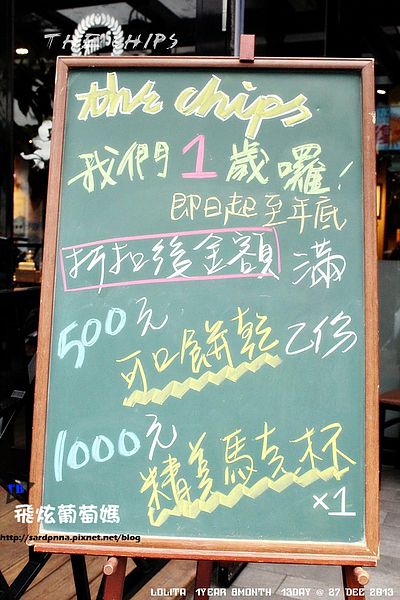 THE CHIPS
the chips
我們1歲囉!
即日起至年底
折扣後金額 滿
500元
可口餅乾乙份
1000元
精美馬克杯
×1
飛炫葡萄媽
http://sardpnna.pixnet.net/blog
LOLITA 1YEAR 8MONTH 13DAY @ 27 DEC 2013